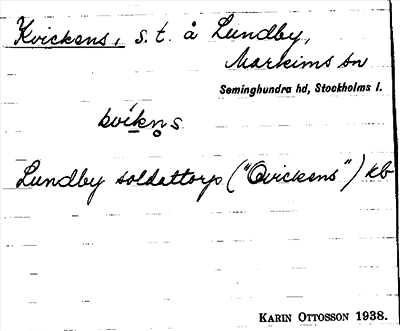 Kvickens, s.t. å Lundby,
Markims sn
Seminghundra hd, Stockholms l.
kvíkn̥s
Lundby soldattorp ("Qvickens") kb
KARIN OTTOSSON 1938.